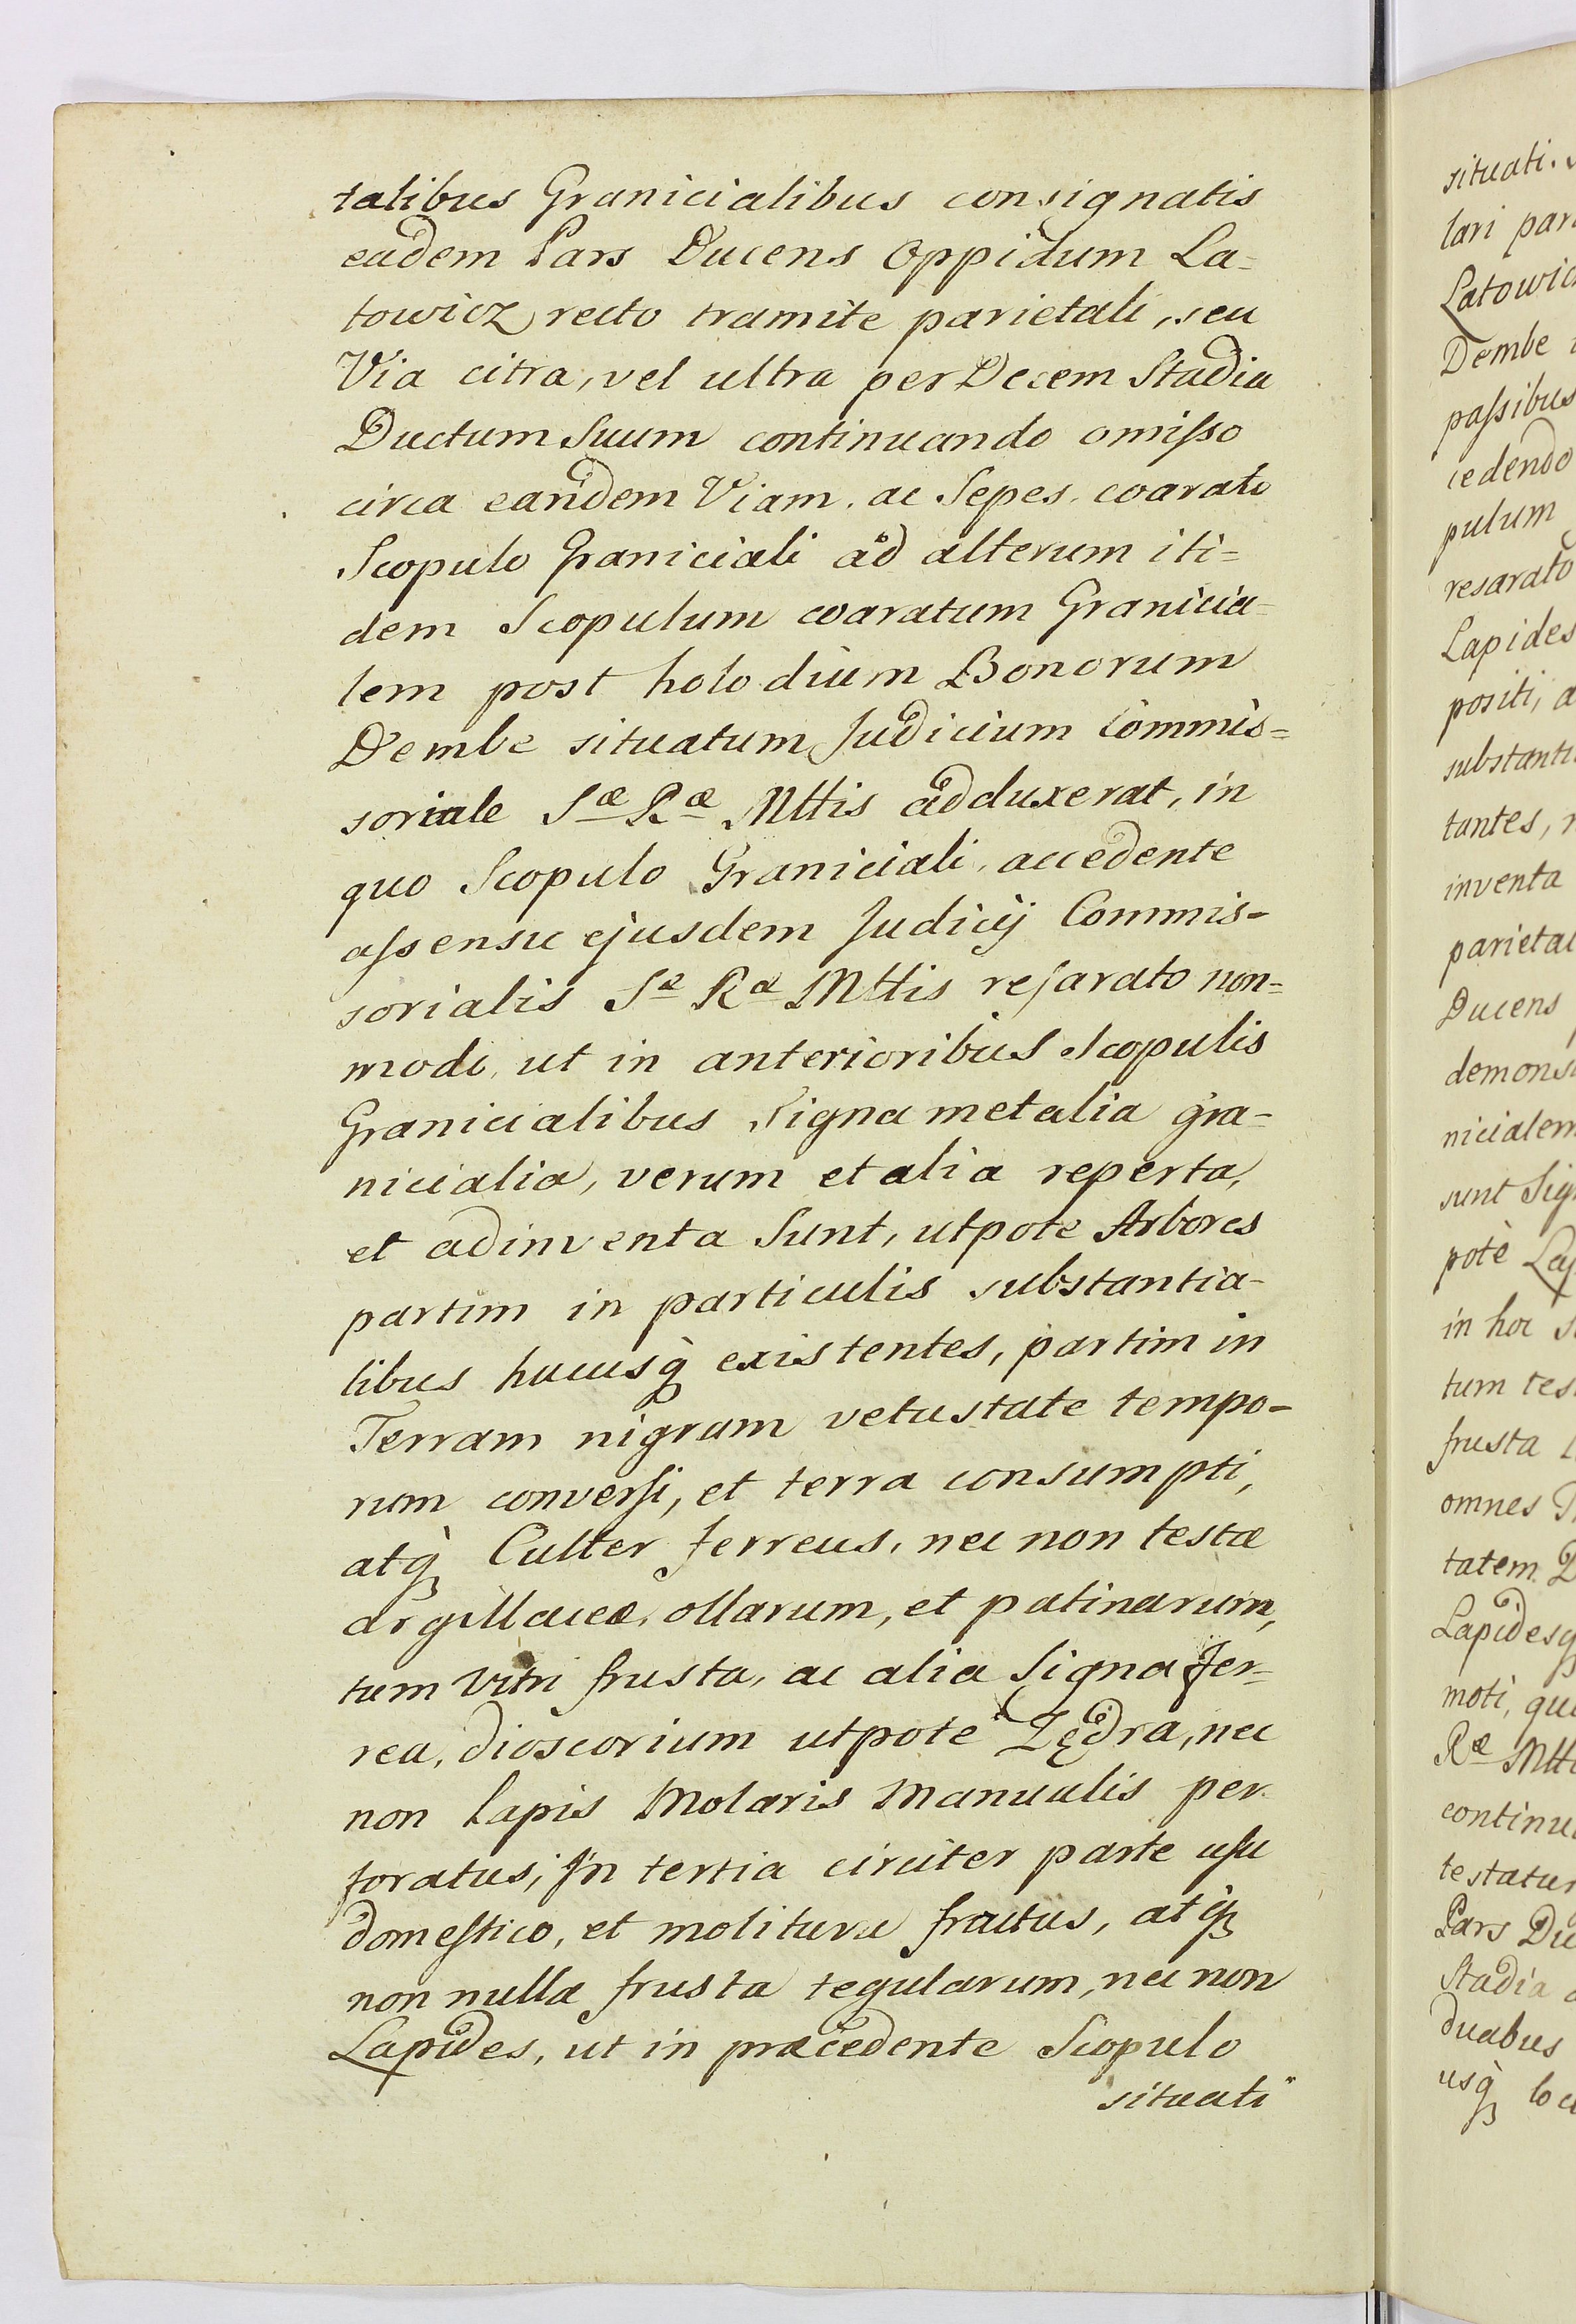 talibus Granicialibus consignatis
eadem Pars Ducens Oppidum La=
towicz recto tramite parietali, seu
Via citra, vel ultra per Decem Stadia
Ductum Suum continuando omiſso
circa eandem Viam, ac Sepes, coarato
Scopulo Graniciali ad alterum iti=
dem Scopulum coaratum Granicia=
lem post holodium Bonorum
Dembe situatum Judicium Commis=
soriale Sæ Ræ Mttis adduxerat, in
quo Scopulo Graniciali, accedente
aſsensu ejusdem Judicij Commis=
sorialis Sæ Ræ Mttis reſarato non=
modi, ut in anterioribus Scopulis
Granicialibus Signa metalia gra-
nicialia, verum et alia reperta,
et adinventa Sunt, utpote Arbores
partim in particulis substantia-
libus hucusq̀ existentes, partim in
Terram nigram vetustate tempo-
rum converſi, et terra consumpti,
atq̀ Culter ferreus, nec non testæ
argillaceæ, ollarum, et patinarum,
tum vitri frusta, ac alia Signa fer=
rea, dioscorium utpote Zędra, nec
non Lapis Molaris Manualis per-
foratus, in tertia circiter parte uſu
domeſtico, et molitura fractus, atq̀
non nulla frusta tegularum, nec non
Lapides, ut in præcedente Scopulo
situati
situati.
lari par
Latowic
Dembe
paſsibus
cedendo
pulum
resarato
Lapides
positi, a
substanti
tantes,
inventa
parietal
Ducens
demons
nicialem
sunt Sig
potè Lap
in hoc
tum tes
frusta
omnes
tatem
Lapidesq
moti, qu
Ræ Mtt
continu
testatur
Pars Du
Stadia
duabus
usq̀ loc